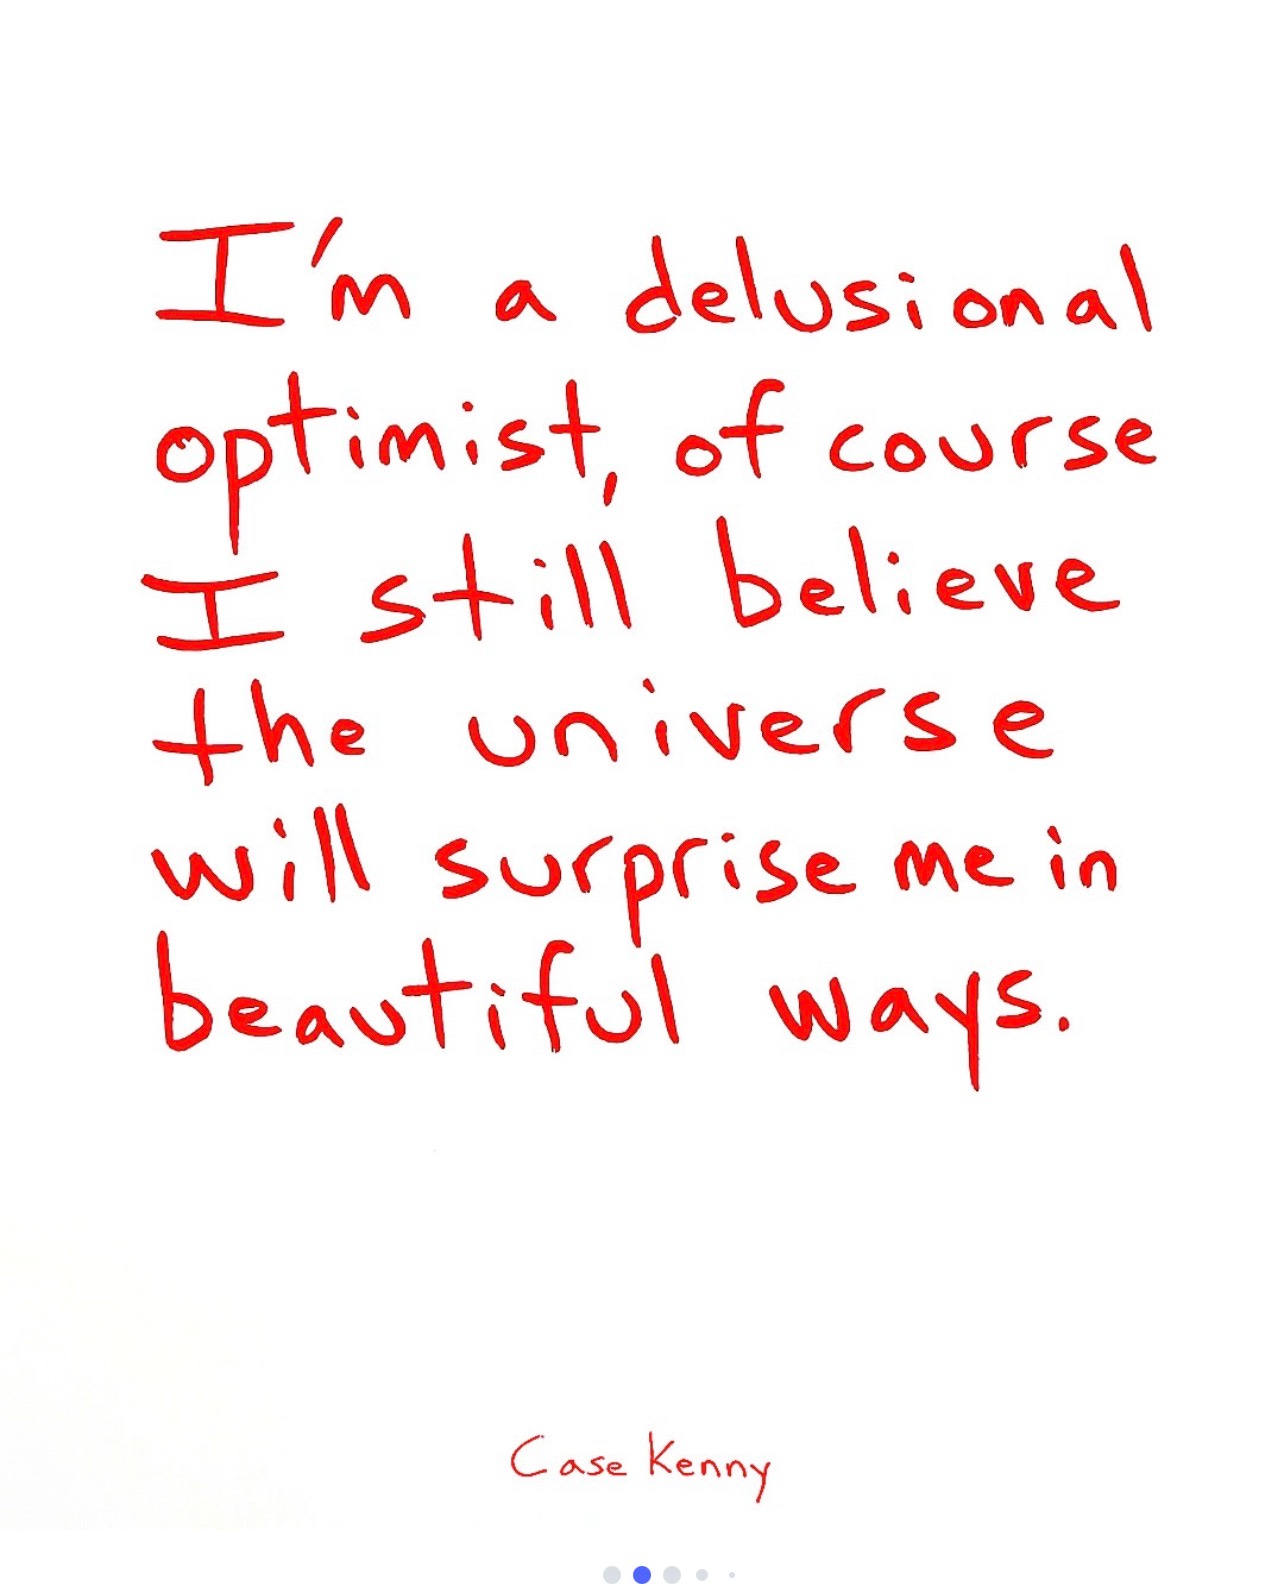 I'm a delusional
optimist, of course
I still believe
the universe
will surprise me in
beautiful ways.
Case Kenny